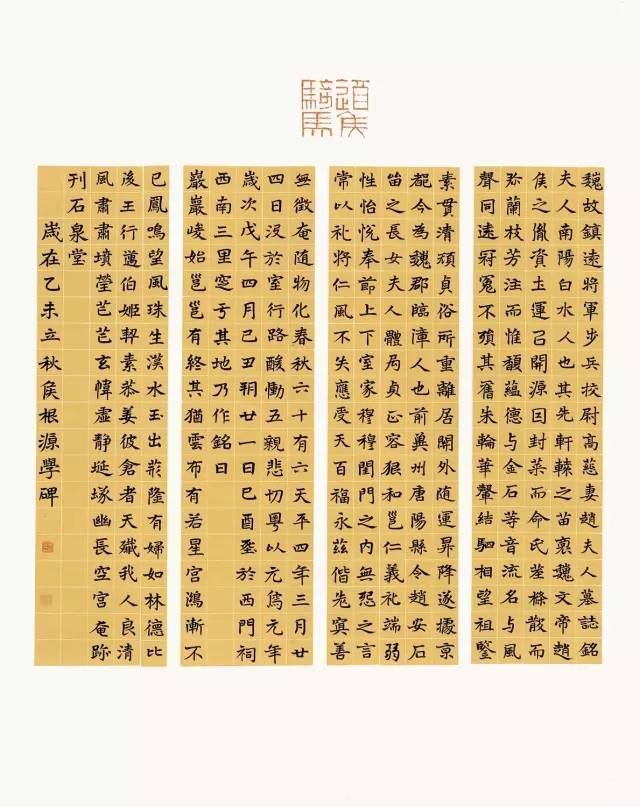 魏故鎮遠將軍步兵挍尉高慈妻趙夫人墓誌銘
夫人南陽白水人也其先軒轅之苗裔魏文帝趙
侯之胤資土運㠯開源因封菜而命氏條散而
弥蘭枝芳注而惟馥蘊德与金石等音流名与風
聲同逺冠冕不殞其舊朱輪華轂結駟相望祖鑒
素貫清貞俗所重離居開外随運昇降遂據京
都令為魏郡臨漳人也前冀州唐陽縣令趙安石
笛之長女夫人體局貞正容狠和邕仁義礼端弱
性怡悦奉節上下室家穆穆閨門之内無怨之言
常以礼將仁風不失應受天百福永茲偕老寞善
無徵奄随物化春秋六十有六天平四年三月廿
四日没於室行路酸慟五親悲切粤以元爲元年
歲次戊午四月己丑玥廿一日己酉葬於西門祠
西南三里窆亏其地乃作銘曰
巖巖峻始邕邕有終其猶雲布有若星宫鴻漸不
已鳳鳴望風珠生漢水玉出隆有婦如林德比
後王行邁伯姬契素恭姜彼倉者天殲我人良清
風肅肅墳瑩芒芒玄幃虚静埏幽長空宫奄跡
刊石泉堂
歲在乙未立秋侯根源學碑